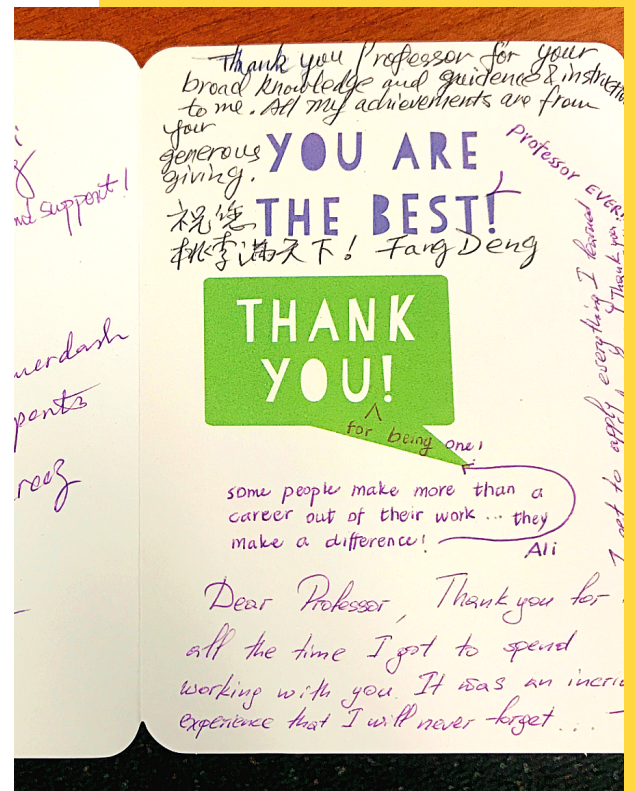 nd support!
nerdash
pents
reez
Thank you Professor for your
broad knowledge and guidence & instruction
to me. All my achievements are from
your
generous
giving.
祝您
桃李满天下! Fang Deng
YOU ARE
THE BEST!
Professor EVER!!
THANK
YOU!
for being one!
some people make more than a
career out of their work ... they
make a difference!
Ali
Dear Professor, Thank you for
all the time I got to spend
working with you. It was an incri
experience that I will never forget...
I get to apply everything I learned
Thank you